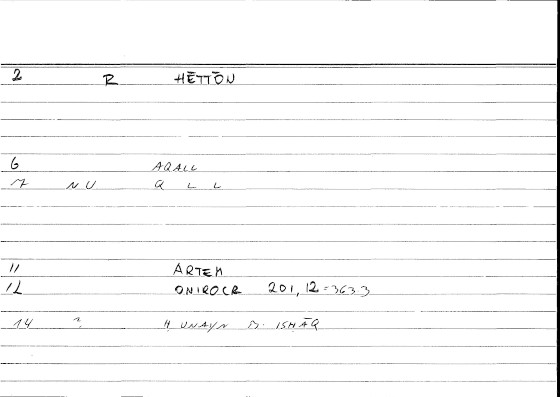 2 R HĒTTŌN
6 AQALL
7 NU Q L L
11 ARTEM
12 ONIROCR 201,12=3633
14 ḤUNAYN B. ISḤĀQ